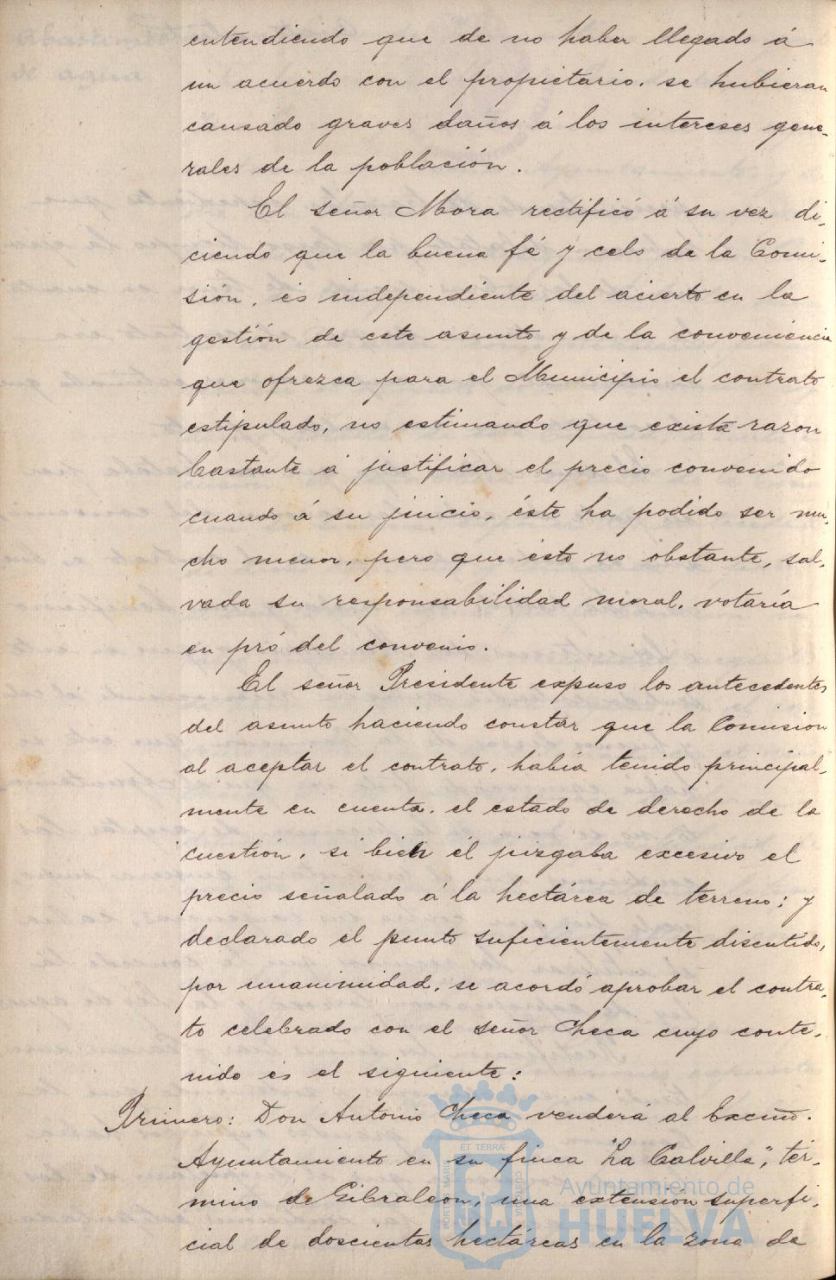 entendiendo que de no haber llegado á
un acuerdo con el propietario, se hubieran
causado graves daños á los intereses gene-
rales de la población.
El señor Mora rectificó á su vez di-
ciendo que la buena fé y celo de la Comi-
sión, és independiente del acierto en la
gestión de este asunto y de la conveniencia
que ofrezca para el Municipio el contrato
estipulado, no estimando que exista razon
bastante á justificar el precio convenido
cuando á su juicio, éste ha podido ser mu-
cho menor, pero que ésto no obstante, sal-
vada su responsabilidad moral, votaría
en pró del convenio.
El señor Presidente expuso los antecedentes
del asunto haciendo constar que la Comision
al aceptar el contrato, había tenido principal-
mente en cuenta, el estado de derecho de la
cuestión, si bien él juzgaba excesivo el
precio señalado á la hectárea de terreno; y
declarado el punto suficientemente discutido,
por unanimidad, se acordó aprobar el contra-
to celebrado con el señor Checa cuyo conte-
nido es el siguiente:
Primero: Don Antonio Checa venderá al Excmo.
Ayuntamiento en su finca "La Calvilla", tér-
mino de Gibraleon, una extensión superfi-
cial de doscientas hectáreas en la zona de
ET TERRÆ
Ayuntamiento de
HUELVA